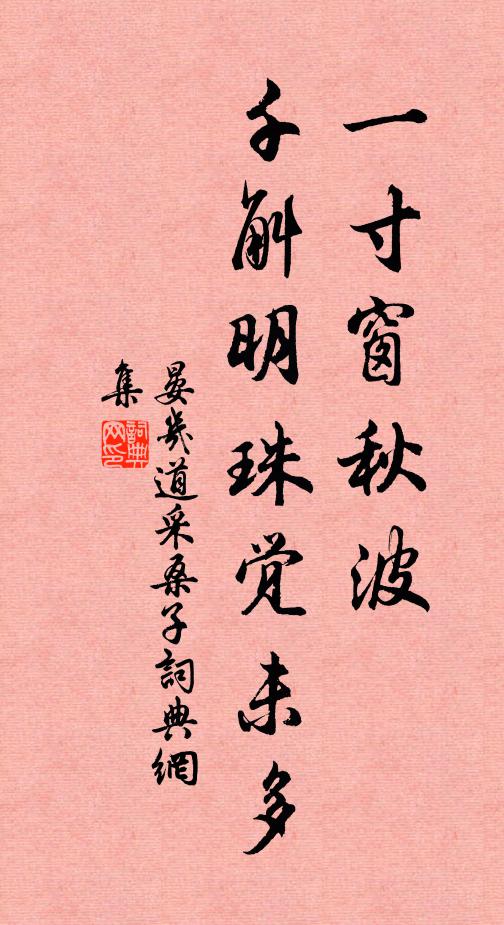 一寸窗秋波
千斛明珠觉未多
晏几道采桑子詞典網
集
詞典
网印